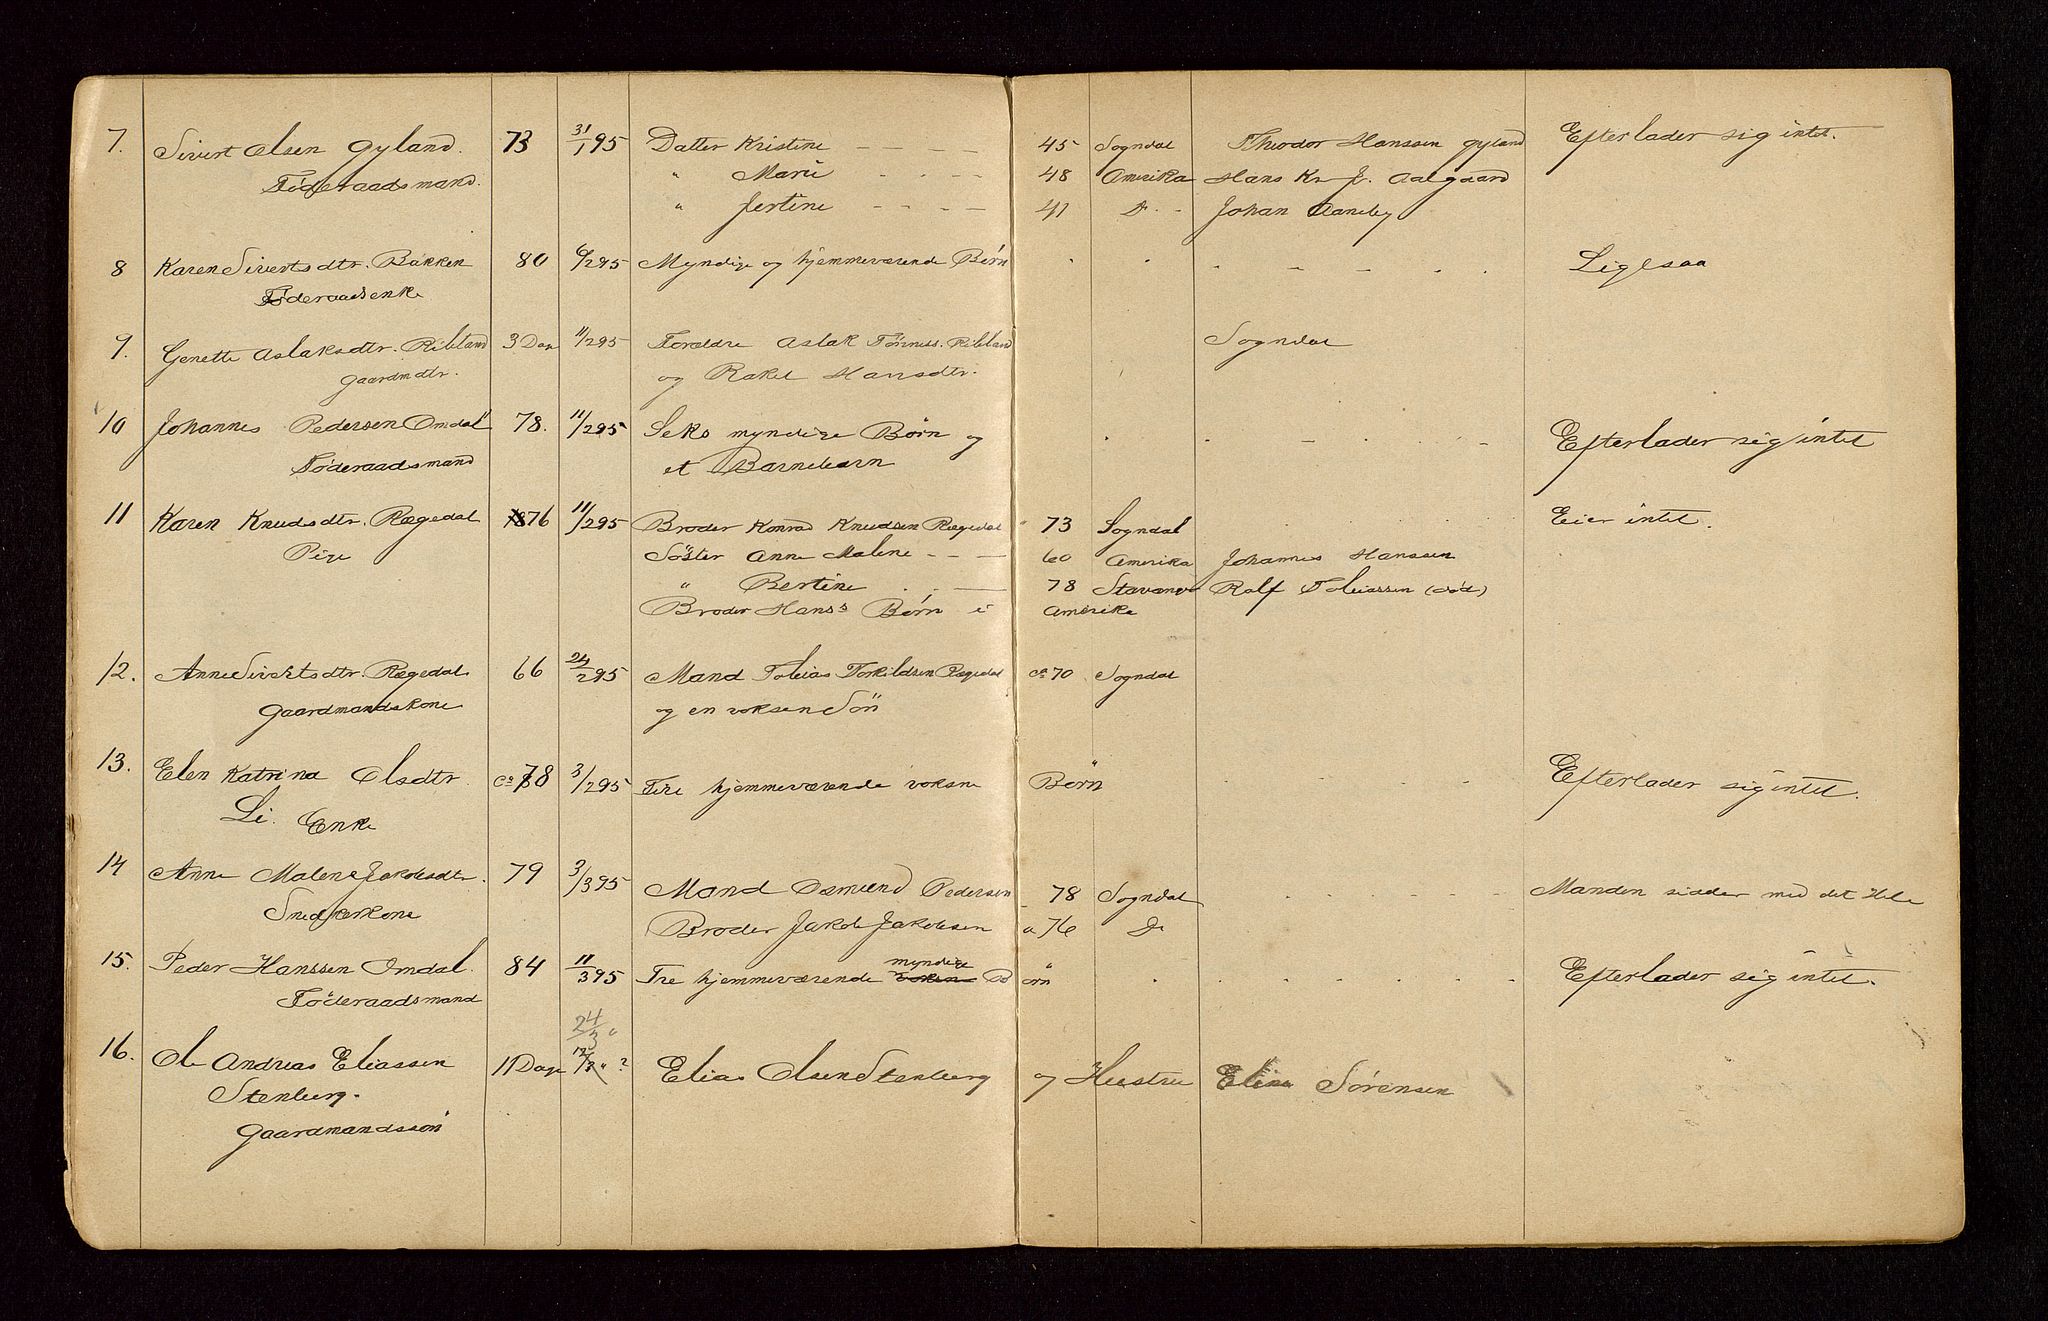 7. Sivert Olsen Gyland. 73 31/1 95 Datter Kristine — — — — 45 Sogndal Theodor Hanssen Gyland Efterlader sig intet.
Föderaadsmand. " Marie - - - - 48 Amerika Hans Kr J. Aalgaard
" Jertine - - - - 41 Do - Johan Aaneby
8 Karen Sivertsdtr. Bakken 80 6/2 95 Myndige og hjemmeværende Börn - - - - - - Ligesaa
Föderaadsenke
9. Genette Aslaksdtr. Ribland 3 Dage 11/2 95 Forældre Aslak Tönness. Ribland Sogndal
Gaardmdtr. og Rakel Hansdtr.
10 Johannes Pedersen Omdal 78. 11/2 95 Seks myndige Börn og - - - - - Efterlader sig intet
Föderaadsmand et Barnebarn
11 Karen Knudsdtr. Rægedal 76 11/2 95 Broder Konrad Knudsen Rægedal 73 Sogndal Eier intet.
Pige Söster Anne Malene - - - 60 Amerika Johannes Hanssen
" Bertine - - - 78 Stavanger Ralf Tobiassen (död)
Broder Hans's Börn i Amerika
12. Anne Sivertsdtr. Rægedal 66 24/2 95 Mand Tobias Torkildsen Rægedal ca 70 Sogndal
Gaardmandskone og en voksen Sön
13. Elen Katrina Olsdtr. ca 78 3/2 95 Tre hjemmeværende voksne Börn - - - - Efterlader sig intet.
Li. Enke
14 Anne Malene Jakobsdtr. 79 3/3 95 Mand Osmund Pedersen 78 Sogndal - - - - Manden sidder med det Hele
Snedkerkone Broder Jakob Jakobsen " 76 Do
15. Peder Hanssen Omdal. 84 11/3 95 Tre hjemmeværende myndige voksne Börn - - - - - - Efterlader sig intet.
Föderaadsmand
24/3 "
16. Ole Andreas Eliassen 11 Dage 12/3 " ? Elias Olsen Stenberg og Hustru Eline Sörensen
Stenberg.
Gaardmandssön